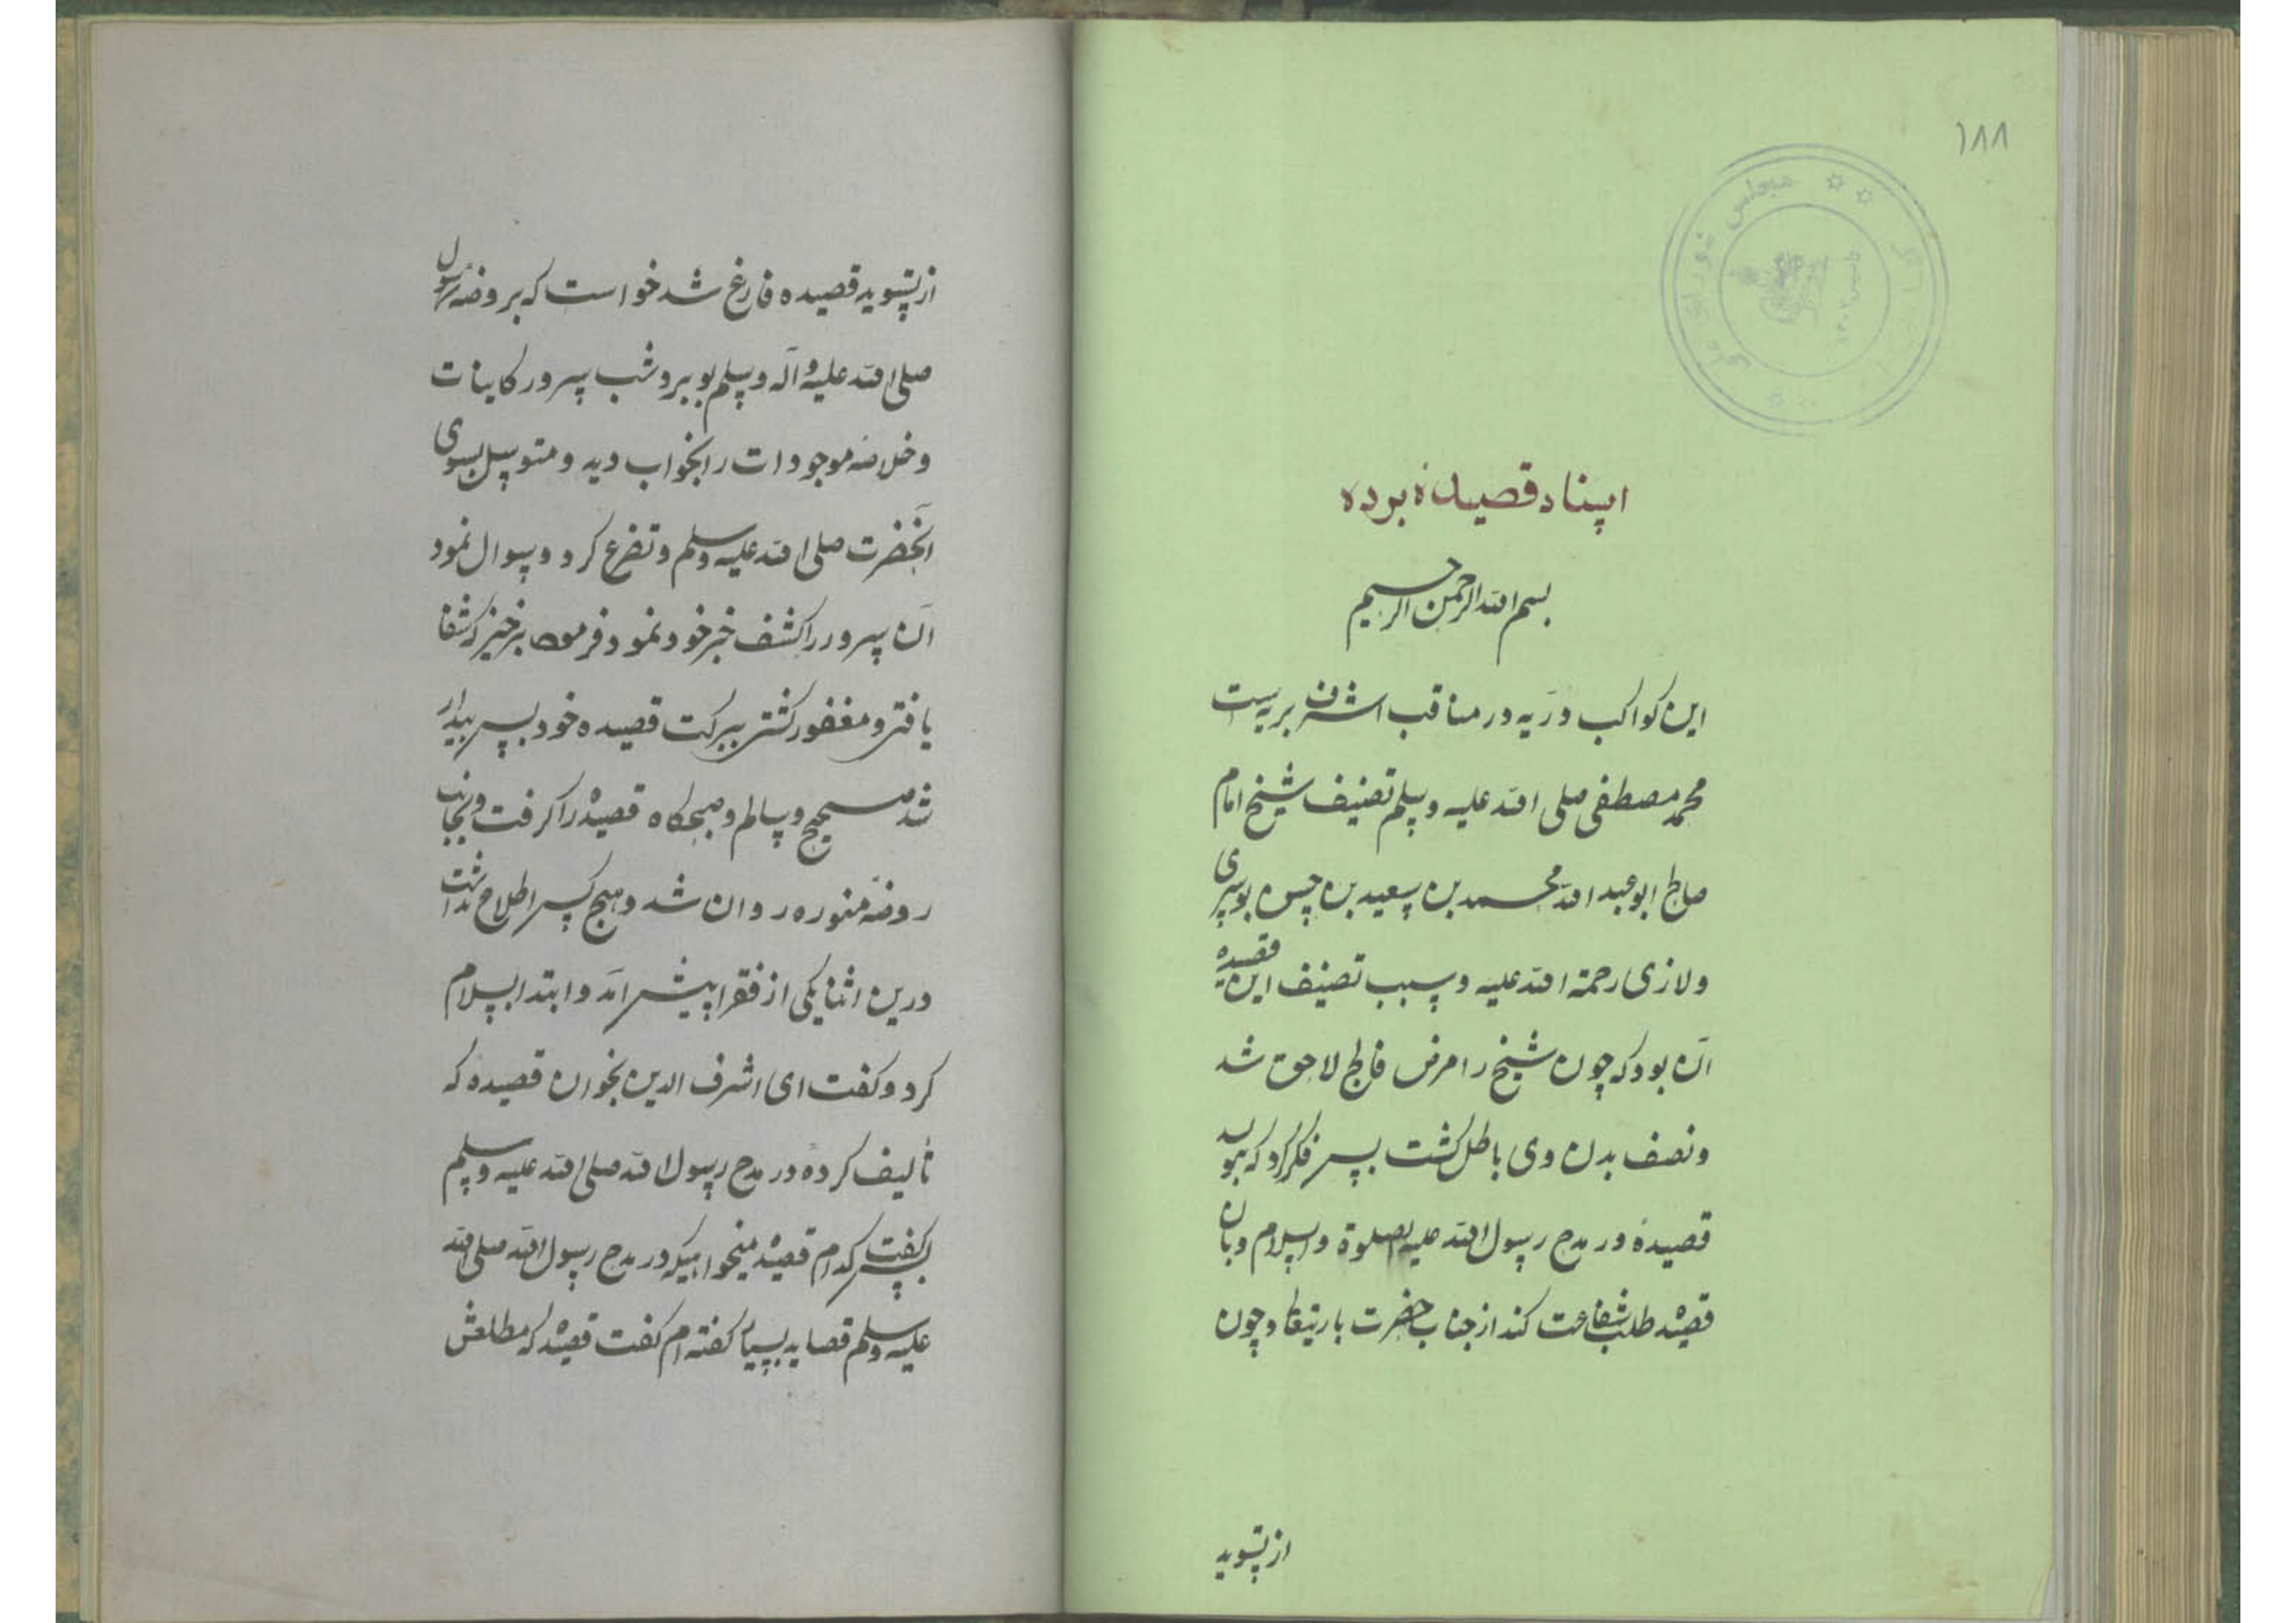 ۱۸۸
اسناد قصیدهٔ برده
بسم الله الرحمن الرحیم
این کواکب دریه در مناقب اشرف بریه است
محمد مصطفی صلی الله علیه وسلم تصنیف شیخ امام
صالح ابو عبد الله محمد بن سعید بن حسن بوسیری
ولازی رحمة الله علیه و سبب تصنیف این قصیده
آن بود که چون شیخ را مرض فالج لاحق شد
و نصف بدن وی باطل کشت پس فکر کرد که
قصیدهٔ در مدح رسول الله علیه الصلوة والسلام و بان
قصیده طلب شفاعت کند از جناب حضرت باریتعالی و چون
از تسوید
از تسوید قصیده فارغ شد خواست که بروضهٔ رسول
صلی الله علیه و آله وسلم بوببرو شب سرور کاینات
و خلاصهٔ موجودات را بخواب دید و متوسل بسوی
آنحضرت صلی الله علیه وسلم و تضرع کرد و سوال نمود
آن سرور را کشف خبر خود نمود فرمود برخیز که شفا
یافتی و مغفور کشتی ببرکت قصیده خود پس بیدار
شد صحیح و سالم و صبحکاه قصیده را کرفت و بجانب
روضهٔ منوره روان شد و هیچ کس اطلاع نداشت
درین اثنا یکی از فقرا پیش آمد و ابتدا بسلام
کرد و کفت ای اشرف الدین بخوان قصیدهٔ که
تالیف کردهٔ در مدح رسول الله صلی الله علیه وسلم
پس کفت کدام قصیده میخواهیکه در مدح رسول الله صلی الله
علیه وسلم قصاید بسیار کفته ام کفت قصیده که مطلعش